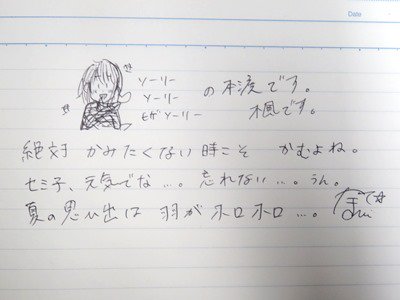 Date
ソーリー
ソーリー
モザソーリー
の本渡です。
楓です。
絶対 かみたくない時こそ かむよね。
セミ子、元気でな…。忘れない…。うん。
夏の思い出は 羽がホロホロ…。